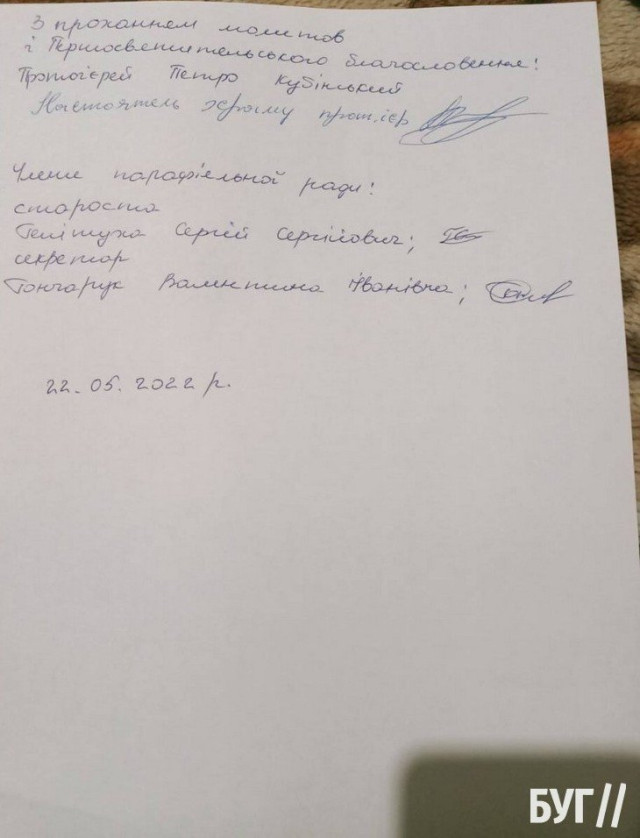 З проханням молитов
і Першосвятительського благословення!
Протоієрей Петро Кубінський
Настоятель храму прот.ієр
Члени парафіяльної ради:
староста
Сергій Сергійович;
секретар
Гончарук Валентина Іванівна;
22.05.2022 р.
БУГ//